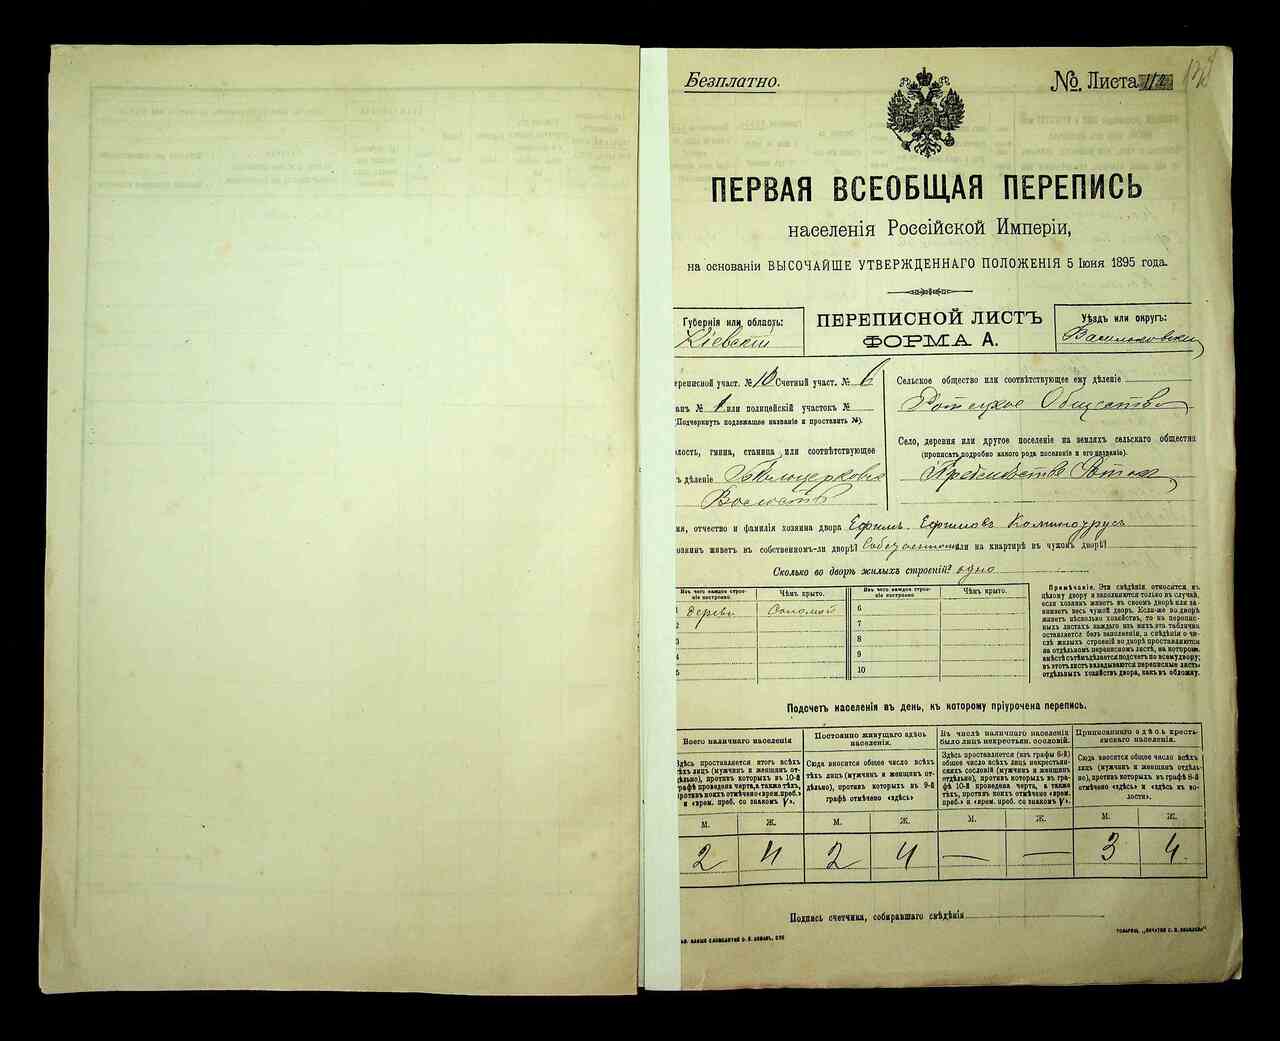 Безплатно.
№. Листа
ПЕРВАЯ ВСЕОБЩАЯ ПЕРЕПИСЬ
населенія Россійской Имперіи,
на основаніи ВЫСОЧАЙШЕ УТВЕРЖДЕННАГО ПОЛОЖЕНІЯ 5 Іюня 1895 года.
Губернія или область:
Кіевскій
ПЕРЕПИСНОЙ ЛИСТЪ
ФОРМА А.
Уѣздъ или округъ:
Васильковскій
ереписной участ. № 10 Счетный участ. № 6
анъ № 1 или полицейскій участокъ №
(Подчеркнуть подлежащее названіе и проставить №).
олость, гмина, станица или соотвѣтствующее
ъ дѣленіе Бѣлоцерковская
Волость
Сельское общество или соотвѣтствующее ему дѣленіе
Ротецкое Общество
Село, деревня или другое поселеніе на земляхъ сельскаго общества
(прописать подробно какого рода поселеніе и его названіе).
мя, отчество и фамилія хозяина двора Ефимъ Ефимовъ
озяинъ живетъ въ собственномъ-ли дворѣ? или на квартирѣ въ чужомъ дворѣ?
Сколько во дворѣ жилыхъ строеній? одно
Изъ чего каждое строеніе построено.
Чѣмъ крыто.
Изъ чего каждое строеніе построено
Чѣмъ крыто.
1 дерева Соломой 6
2 7
3 8
4 9
5 10
Примѣчаніе. Эти свѣдѣнія относятся къ
цѣлому двору и заполняются только въ случаѣ,
если хозяинъ живетъ въ своемъ дворѣ или занимаетъ
весь чужой дворъ. Если-же во дворѣ
живетъ нѣсколько хозяйствъ, то на переписныхъ
листахъ каждаго изъ нихъ эта табличка
оставляется безъ заполненія, а свѣдѣнія о числѣ
жилыхъ строеній во дворѣ проставляются
на отдѣльномъ переписномъ листѣ, на которомъ
вмѣстѣ съ тѣмъ дѣлается подсчетъ по всему двору;
въ этотъ листъ вкладываются переписные листы
отдѣльныхъ хозяйствъ двора, какъ въ обложку.
Подсчетъ населенія въ день, къ которому пріурочена перепись.
Всего наличнаго населенія
Здѣсь проставляется итогъ всѣхъ
тѣхъ лицъ (мужчинъ и женщинъ отдѣльно),
противъ которыхъ въ 10-й
графѣ проведена черта, а также тѣхъ,
противъ коихъ отмѣчено «врем. преб.»
и «врем. преб. со знакомъ V».
Постоянно живущаго здѣсь
населенія.
Сюда вносится общее число всѣхъ
тѣхъ лицъ (мужчинъ и женщинъ отдѣльно),
противъ которыхъ въ 9-й
графѣ отмѣчено «здѣсь»
Въ числѣ наличнаго населенія
было лицъ некрестьян. сословій.
Здѣсь проставляется (изъ графы 6-й)
общее число всѣхъ лицъ некрестьянскихъ
сословій (мужчинъ и женщинъ
отдѣльно), противъ которыхъ въ графѣ
10-й проведена черта, а также
тѣхъ, противъ коихъ отмѣчено «врем.
преб.» и «врем. преб. со знакомъ V».
Приписаннаго здѣсь крестьянскаго
населенія.
Сюда вносится общее число всѣхъ
лицъ (мужчинъ и женщинъ отдѣльно),
противъ которыхъ въ графѣ 8-й
отмѣчено «здѣсь» и «здѣсь въ волости».
М. Ж. М. Ж. М. Ж. М. Ж.
2 4 2 4 — — 3 4
Подпись счетчика, собиравшаго свѣдѣнія